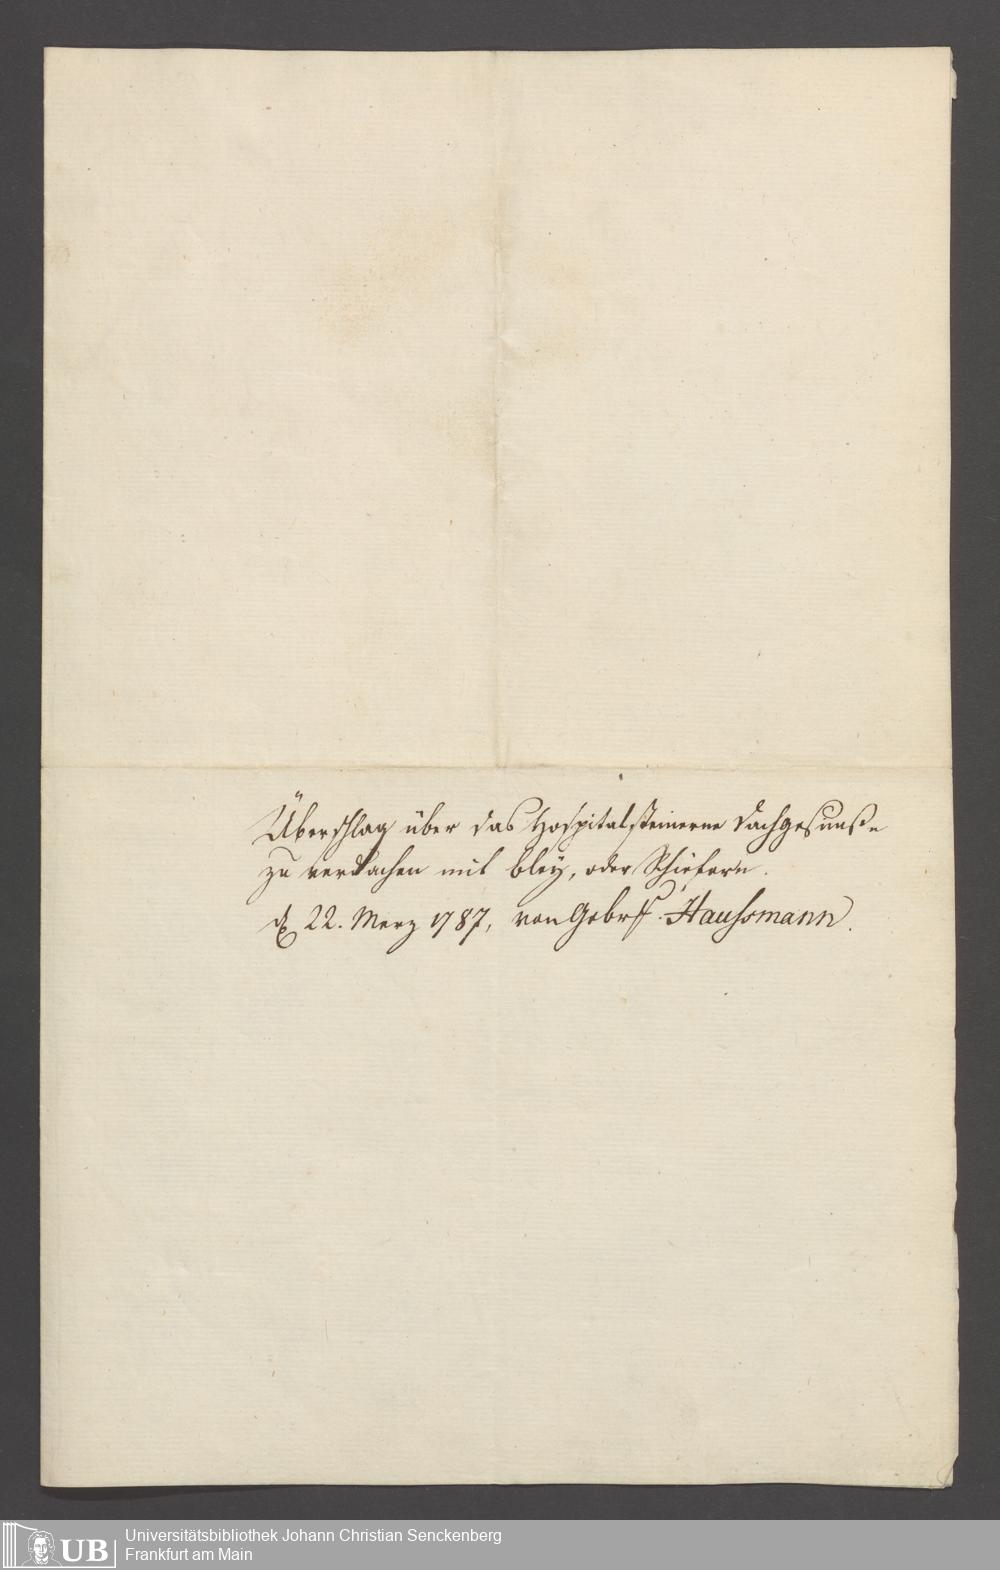 Überschlag über das Hospital steinerne Dachgesimße
zu verdachen mit bley, oder Schiefern.
d. 22. Merz 1787, von Gebrß. Haussmann.
UB
Universitätsbibliothek Johann Christian Senckenberg
Frankfurt am Main